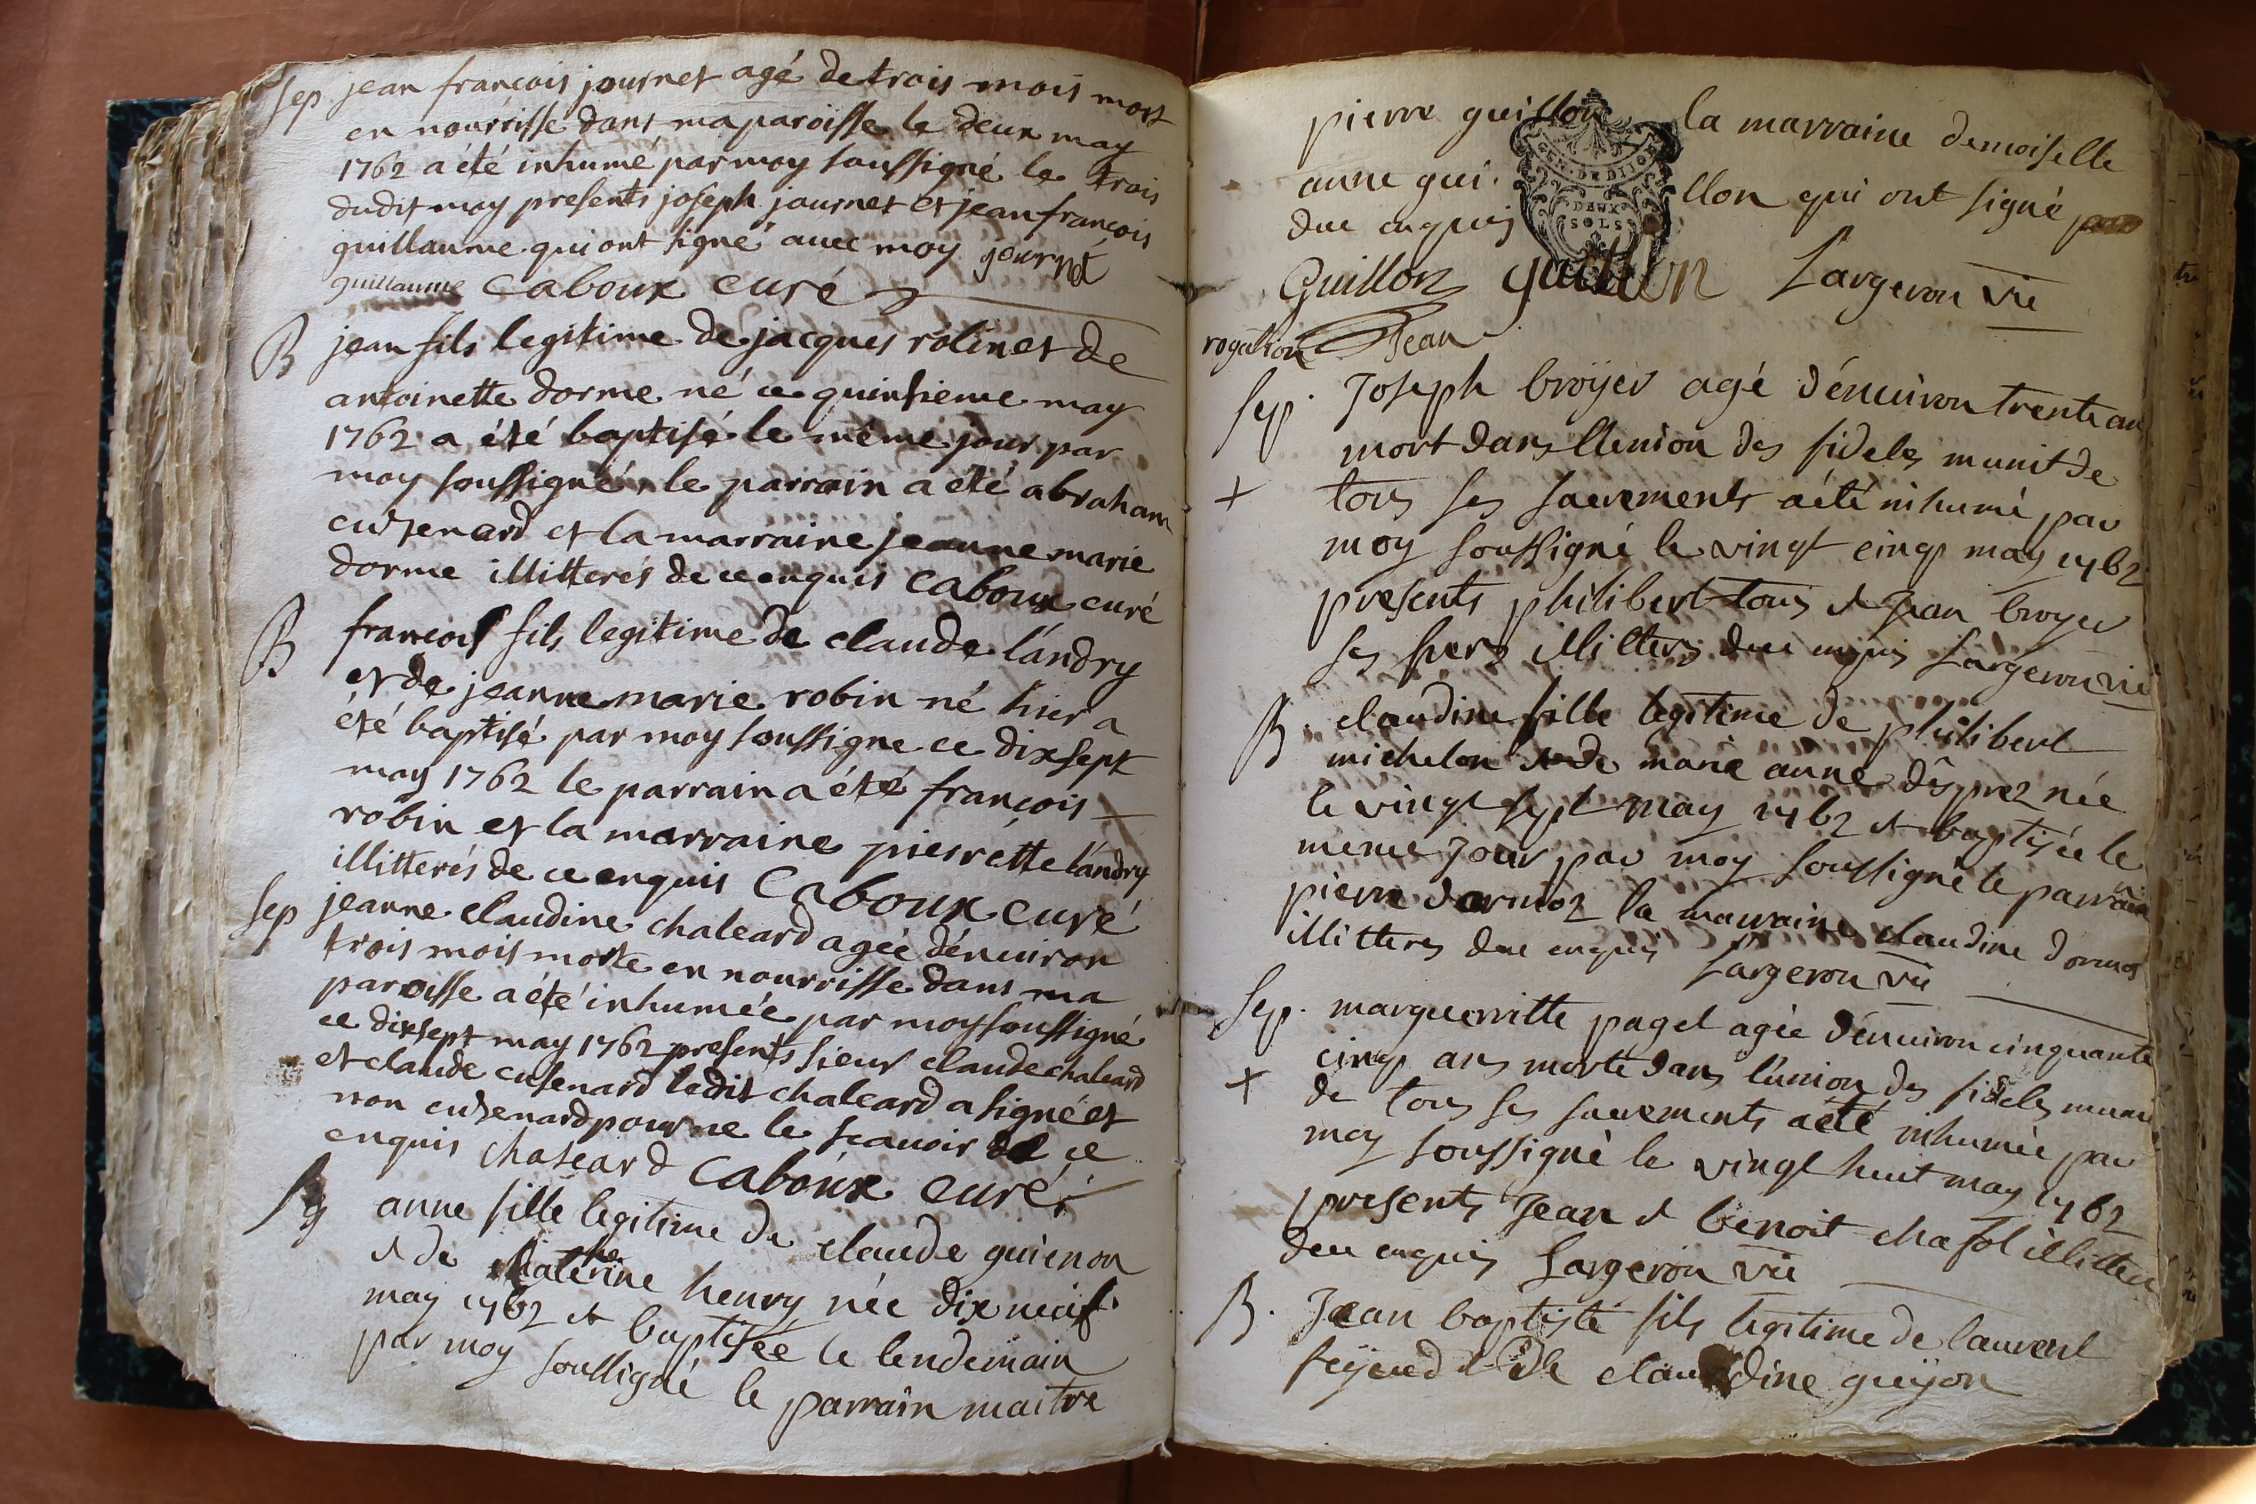 Sep jean françois journet agé de trois mois mort
en nourrisse dans ma paroisse le deux may
1762 a été inhumé par moy soussigné le trois
dudit may presents joseph journet et jean françois
guillaume qui ont signé avec moy journet
guillaume Caboux curé
B jean fils legitime de jacques rolin et de
antoinette dorme né ce quinsieme may
1762 a été baptisé le même jour par
moy soussigné, le parrain a été abraham
cuzenard et la marraine jeanne marie
dorme illitterés de ce enquis Caboux curé
B françois fils legitime de claude landry
et de jeanne marie robin né hier a
été baptisé par moy soussigne ce dixsept
may 1762 le parrain a été françois
robin et la marraine pierrette landry
illitterés de ce enquis Caboux curé
Sep jeanne claudine chaleard agée dénuiron
trois mois morte en nourrisse dans ma
paroisse a été inhumée par moy soussigné
ce dixsept may 1762 presents sieur claude chaleard
et claude cusenard ledit chaleard a signé et
non cuzenard pour ne le scauoir de ce
enquis chaleard Caboux curé
B anne fille legitime de claude guienon
& de katherine henry née dix neuf
may 1762 & baptisée le lendemain
par moy soussigné le parrain maitre
pierre guillon la marraine demoiselle
anne gui. llon qui ont signé
due enquis
GEN. DE DIJON
DEUX
SOLS
Guillon guillon Largeron vic
rogation Jean
Sep. Joseph broÿer agé dénuiron trente ans
mort dans llenion des fideles munit de
+ tous ses sacrements a été inhumé par
moy soussigné le vingt cinq may 1762
presents philibert tous & Jean broyer
ses freres illitters due enquis Largeron vic
B. claudine fille legitime de philibert
michelon & de marie anne desprez née
le vingt sept may 1762 & baptisée le
meme Jour par moy soussigné le parrain
pierre dormoz la marraine claudine dormos
illitteres due enquis Largeron vic
Sep. marguerritte paget agée dénuiron cinquante
cinq ans morte dans l'union des fideles munie
+ de tous ses sacrements a été inhumée par
moy soussigné le vingt huit may 1762
presents Jean & benoit chasol illitteres
due enquis Largeron vic
B. Jean baptiste fils legitime de laurent
& de claudine guÿon